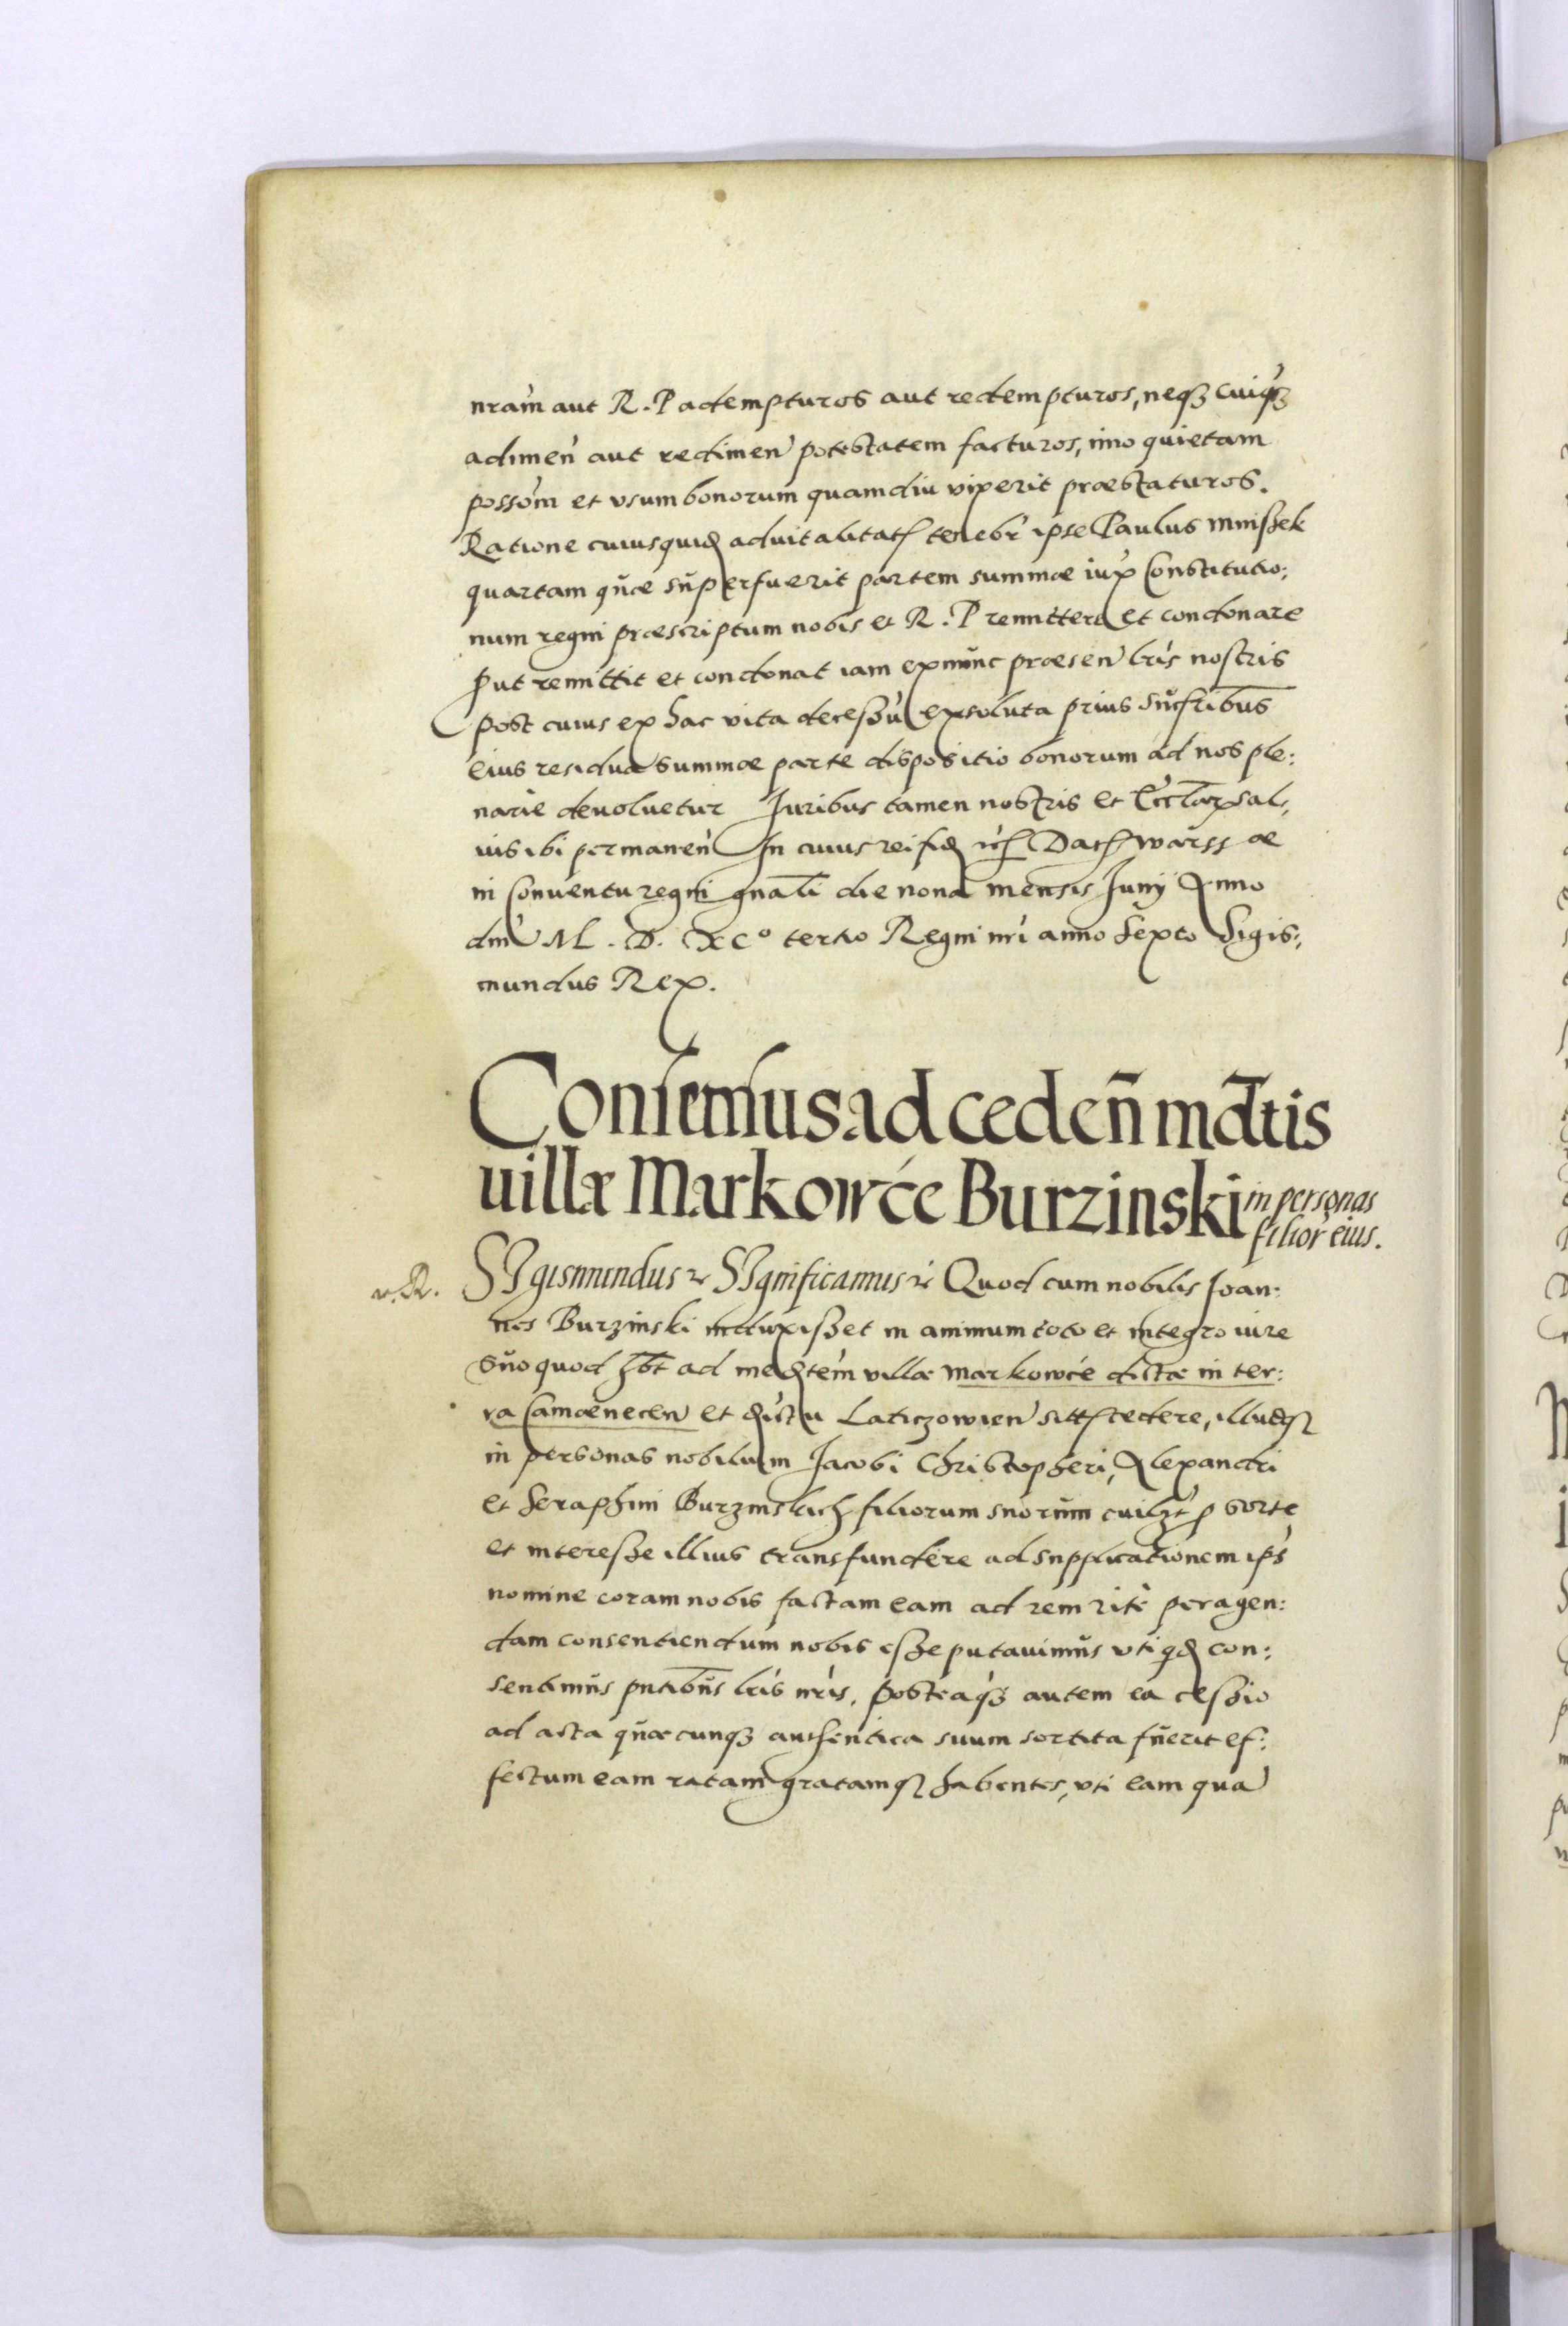 nram̀ aut R. P adempturos aut redempturos, neqꝫ cuiqꝫ
adimeǹ aut redimeǹ potestatem facturos, imo quietam
possom̀ et vsum bonorum quamdiu vixerit præstaturos.
Ratione cuius quid aduitalitatꝭ tenebr̀ ipse Paulus Mniszek
quartam quæ superfuerit partem summæ iux Constitutio:
num regni præscriptum nobis et R. P remittere et condonare
ꝓut remittit et condonat iam exnunc præseǹ lris̀ nostris
post cuius ex hac vita decessu exsoluta prius sucſribus̄
eius residua summæ parte dispositio bonorum ad nos ple:
narie deuoluetur Juribus tamen nostris et Eccl̄ar sal,
uis ibi permaneǹ In cuius rei fid ꝛcꝭ Datꝭ Warss æ
in Conuentu regni gnal̄i die nona mensis Junij Anno
dni M. D. XCº tertio Regni nri̇ anno Sexto Sigis:
mundus Rex.
Consensus ad cedeñ md̄tis
uillæ Markowce Burzinski in personas
filior̀ eius.
r. R. SIgismundus ꝛc SIgnificamus ꝛc Quod cum nobilis Joan:
nes Burzinski induxiszet in animum toto et integro iure
suo quod hƀt ad medtem̀ villæ Markowce dictæ in ter:
ra Camœneceǹ et distu Laticzowieǹ sitꝭ cedere, illudqꝫ
in personas nobilium Jacobi Christopheri, Alexandri
et Seraphini Burzinskich filiorum suorum cuilꝫt ꝓ sorte
et interesze illius transfundere ad supplicationem ips̀
nomine coram nobis factam eam ad rem ritè peragen:
dam consentiendum nobis esze putauimus vti qd con:
sentimus pntibus̄ lris̀ nris̀. Posteaqꝫ autem ea ceszio
ad acta quæcunqꝫ authentica suum sortita fuerit ef:
fectum eam ratam gratamqꝫ habentes, vti eam qua